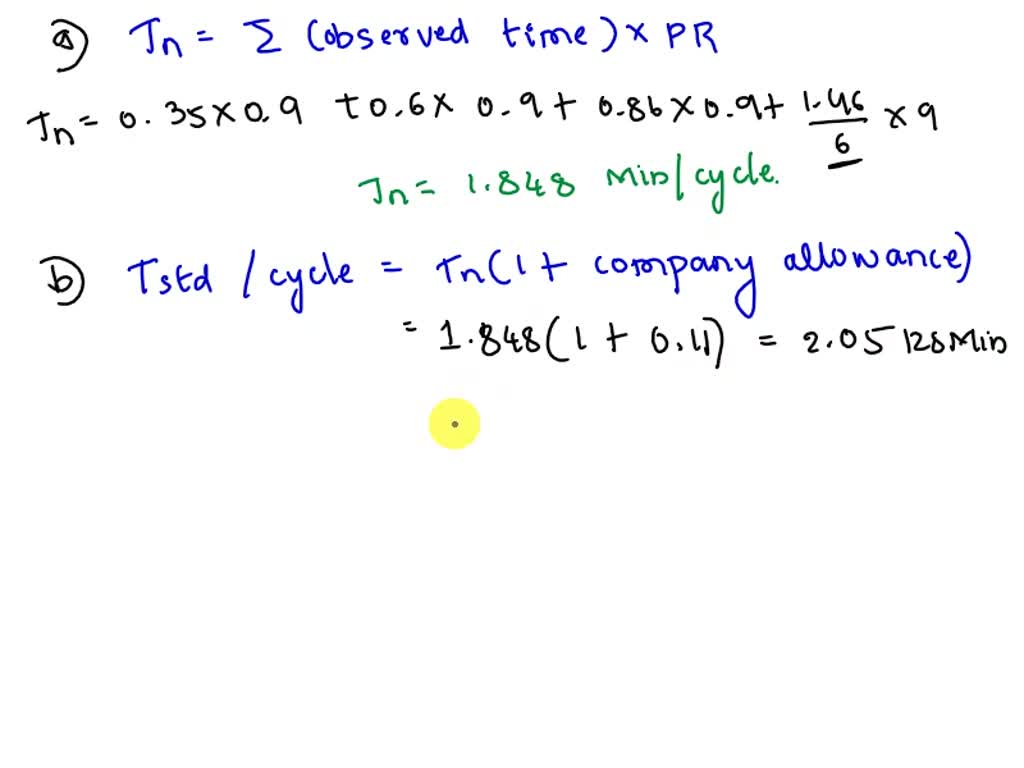 a) Tn = Σ (observed time) × PR
Tn = 0.35 × 0.9 + 0.6 × 0.9 + 0.86 × 0.9 + 1.46/6 × 9
Tn = 1.848 Min/cycle.
b) Tstd / cycle = Tn (1 + company allowance)
= 1.848 (1 + 0.11) = 2.05128 Min